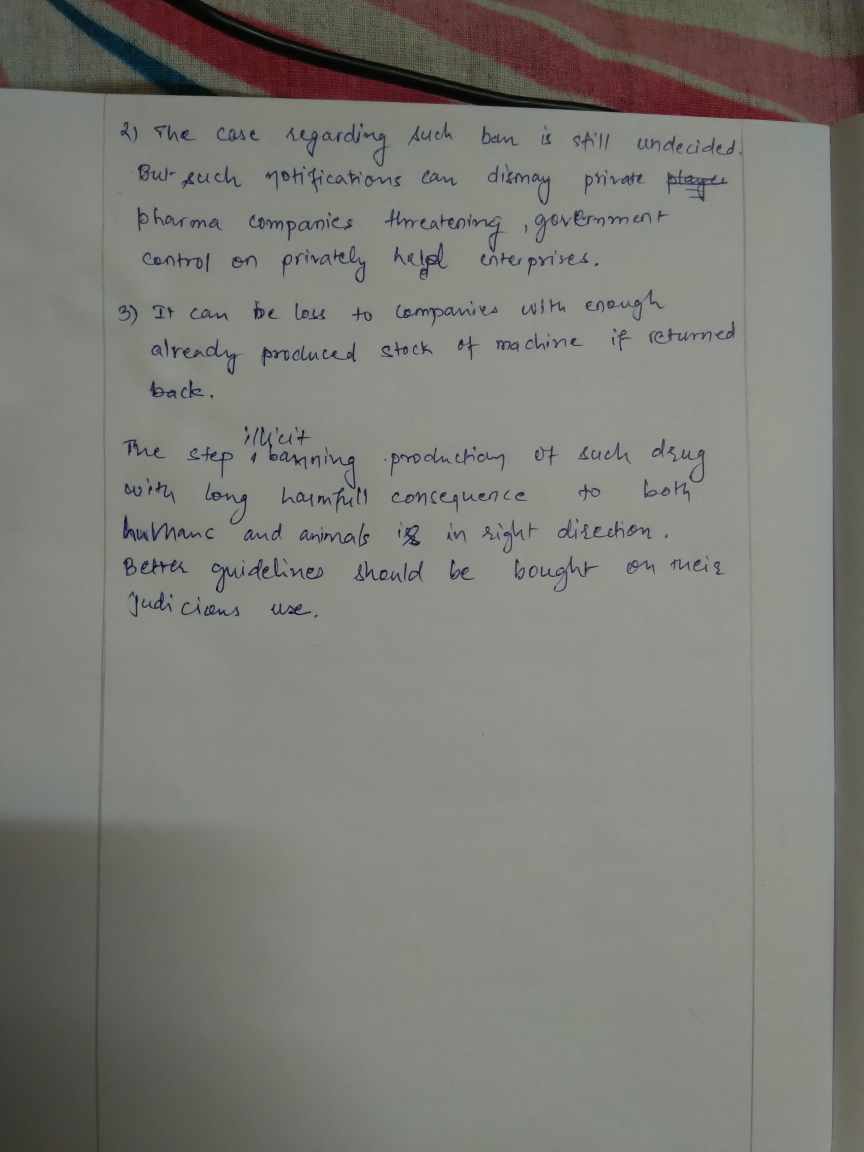 2) The case regarding such ban is still undecided.
But such notifications can dismay private
pharma companies threatening , government
control on privately held enterprises.
3) It can be loss to companies with enough
already produced stock of machine if returned
back.
illicit
The step , banning production of such drug
with long harmfull consequence to both
humans and animals is in right direction.
Better guidelines should be bought on their
judicious use.